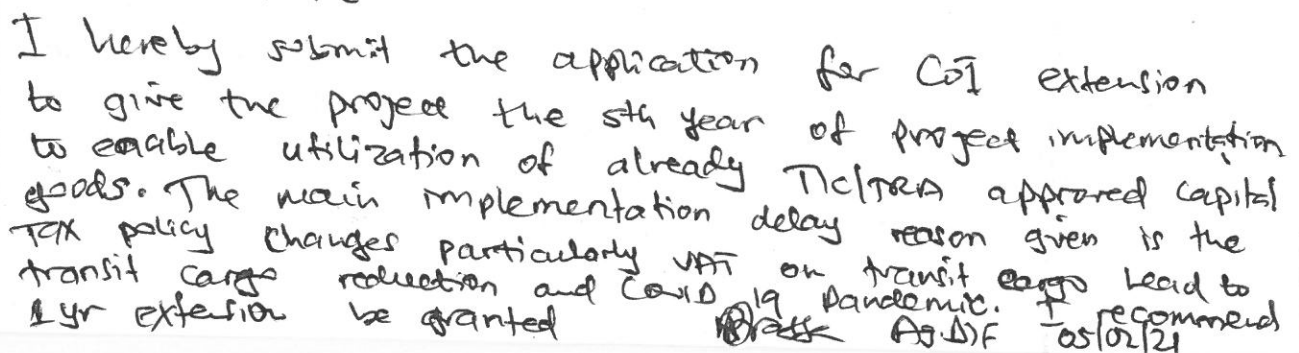 I hereby submit the application for COI extension
to give the project the 5th year of project implementation
to enable utilization of already TIC/TRA approved capital
goods. The main implementation delay reason given is the
Tax policy changes particularly VAT on transit cargo lead to
transit cargo reduction and Covid 19 Pandemic. I recommend
1 yr extension be granted Ag. DIF 05/02/21